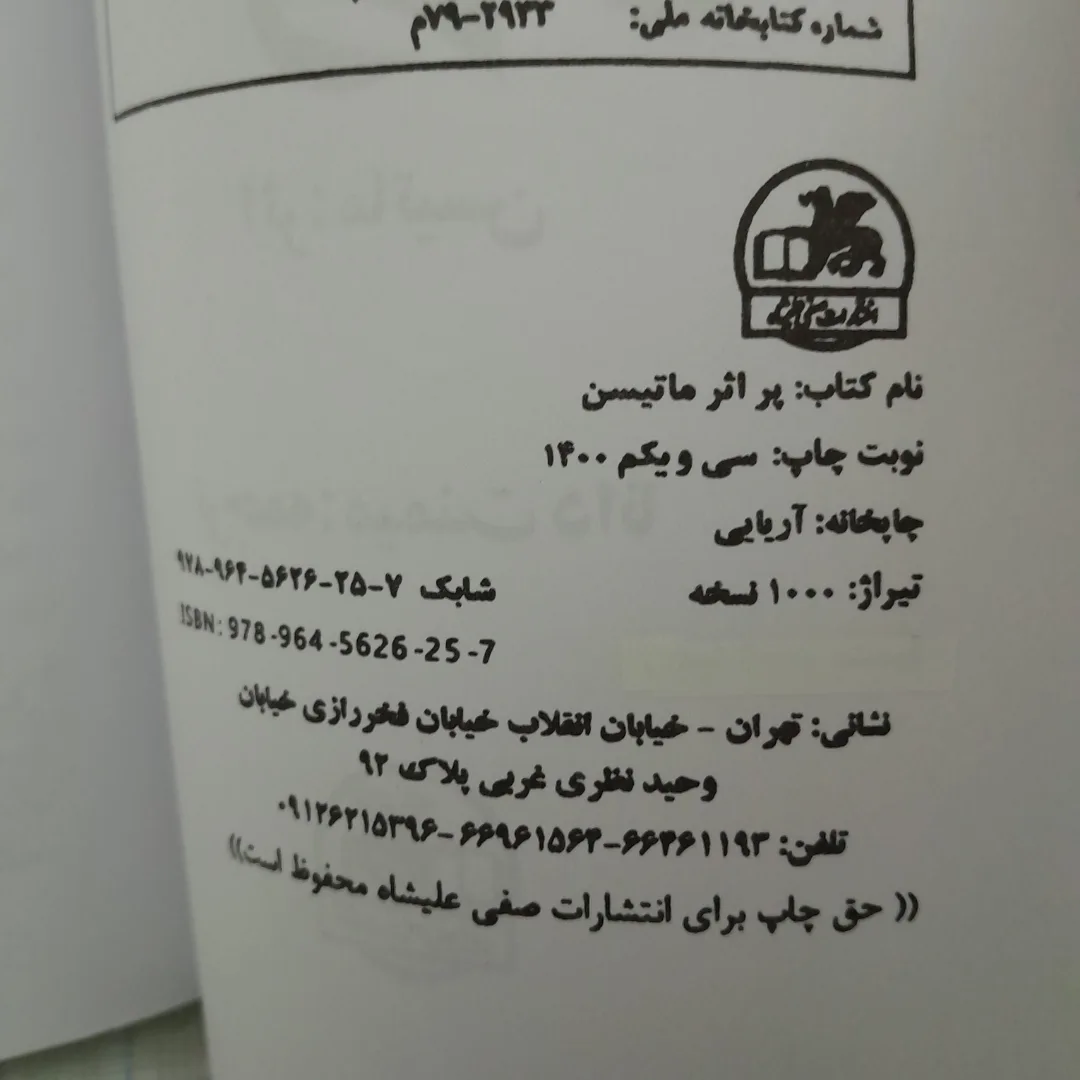 شماره کتابخانه ملی: ۲۹۲۳-۷۹م
نام کتاب: پر اثر ماتیسن
نوبت چاپ: سی و یکم ۱۴۰۰
چاپخانه: آریایی
تیراژ: ۱۰۰۰ نسخه
شابک ۷-۲۵-۵۶۲۶-۹۶۴-۹۷۸
ISBN: 978-964-5626-25-7
نشانی: تهران - خیابان انقلاب خیابان فخررازی خیابان
وحید نظری غربی پلاک ۹۲
تلفن: ۶۶۴۶۱۱۹۳-۶۶۹۶۱۵۶۴-۰۹۱۲۶۲۱۵۳۹۶
(( حق چاپ برای انتشارات صفی علیشاه محفوظ است))